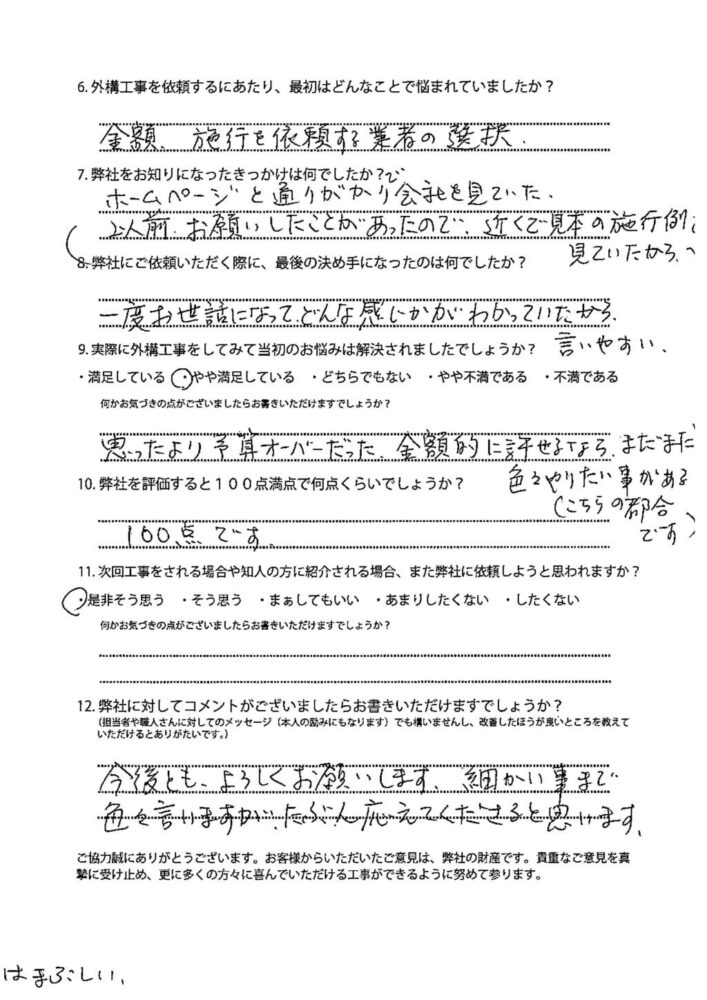 6. 外構工事を依頼するにあたり、最初はどんなことで悩まれていましたか？
金額、施行を依頼する業者の選択．
7. 弊社をお知りになったきっかけは何でしたか？
ホームページと通りがかりで会社を見ていた．
以前、お願いしたことがあったので、近くで見本の施行例
見ていたから、
8. 弊社にご依頼いただく際に、最後の決め手になったのは何でしたか？
一度お世話になって、どんな感じかがわかっていたから
言いやすい、
9. 実際に外構工事をしてみて当初のお悩みは解決されましたでしょうか？
・満足している ・やや満足している ・どちらでもない ・やや不満である ・不満である
何かお気づきの点がございましたらお書きいただけますでしょうか？
思ったより予算オーバーだった、金額的に許せるなら、まだまだ
色々やりたい事がある
（こちらの都合
です）
10. 弊社を評価すると１００点満点で何点くらいでしょうか？
100点です．
11. 次回工事をされる場合や知人の方に紹介される場合、また弊社に依頼しようと思われますか？
・是非そう思う ・そう思う ・まぁしてもいい ・あまりしたくない ・したくない
何かお気づきの点がございましたらお書きいただけますでしょうか？
12. 弊社に対してコメントがございましたらお書きいただけますでしょうか？
（担当者や職人さんに対してのメッセージ（本人の励みにもなります）でも構いませんし、改善したほうが良いところを教えて
いただけるとありがたいです。）
今後とも、よろしくお願いします、細かい事まで
色々言いますが、たぶん応えてくださると思います、
ご協力誠にありがとうございます。お客様からいただいたご意見は、弊社の財産です。貴重なご意見を真
摯に受け止め、更に多くの方々に喜んでいただける工事ができるように努めて参ります。